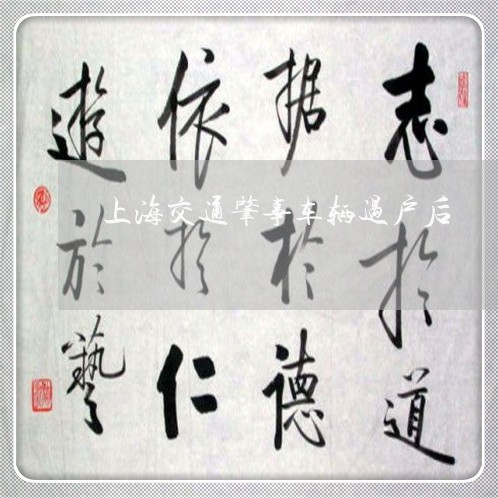 志於道
据於德
依於仁
遊於藝
上海交通肇事车辆過户后